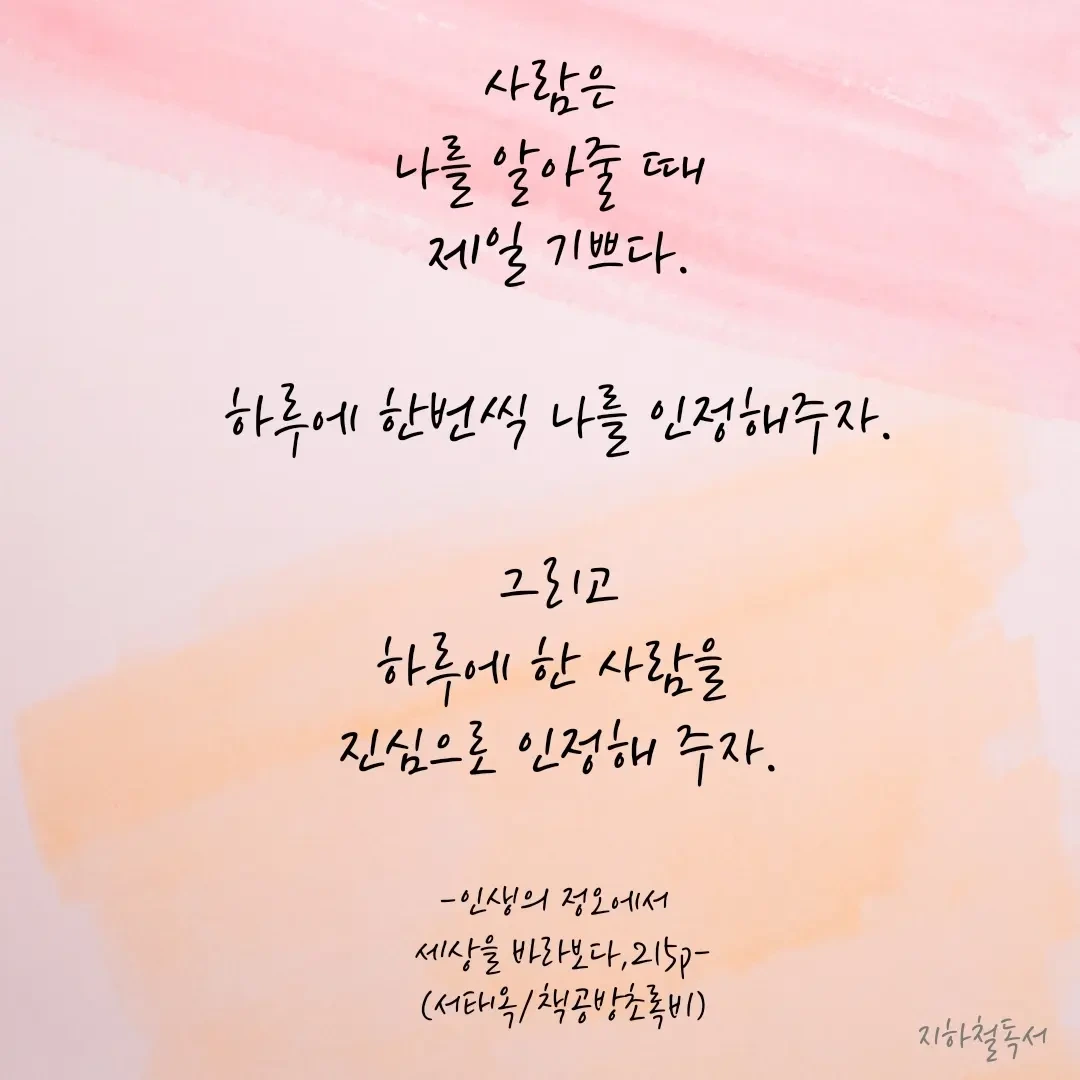 사람은
나를 알아줄 때
제일 기쁘다.
하루에 한번씩 나를 인정해주자.
그리고
하루에 한 사람을
진심으로 인정해 주자.
-인생의 정오에서
세상을 바라보다,215p-
(서태옥/책공방초록비)
지하철독서